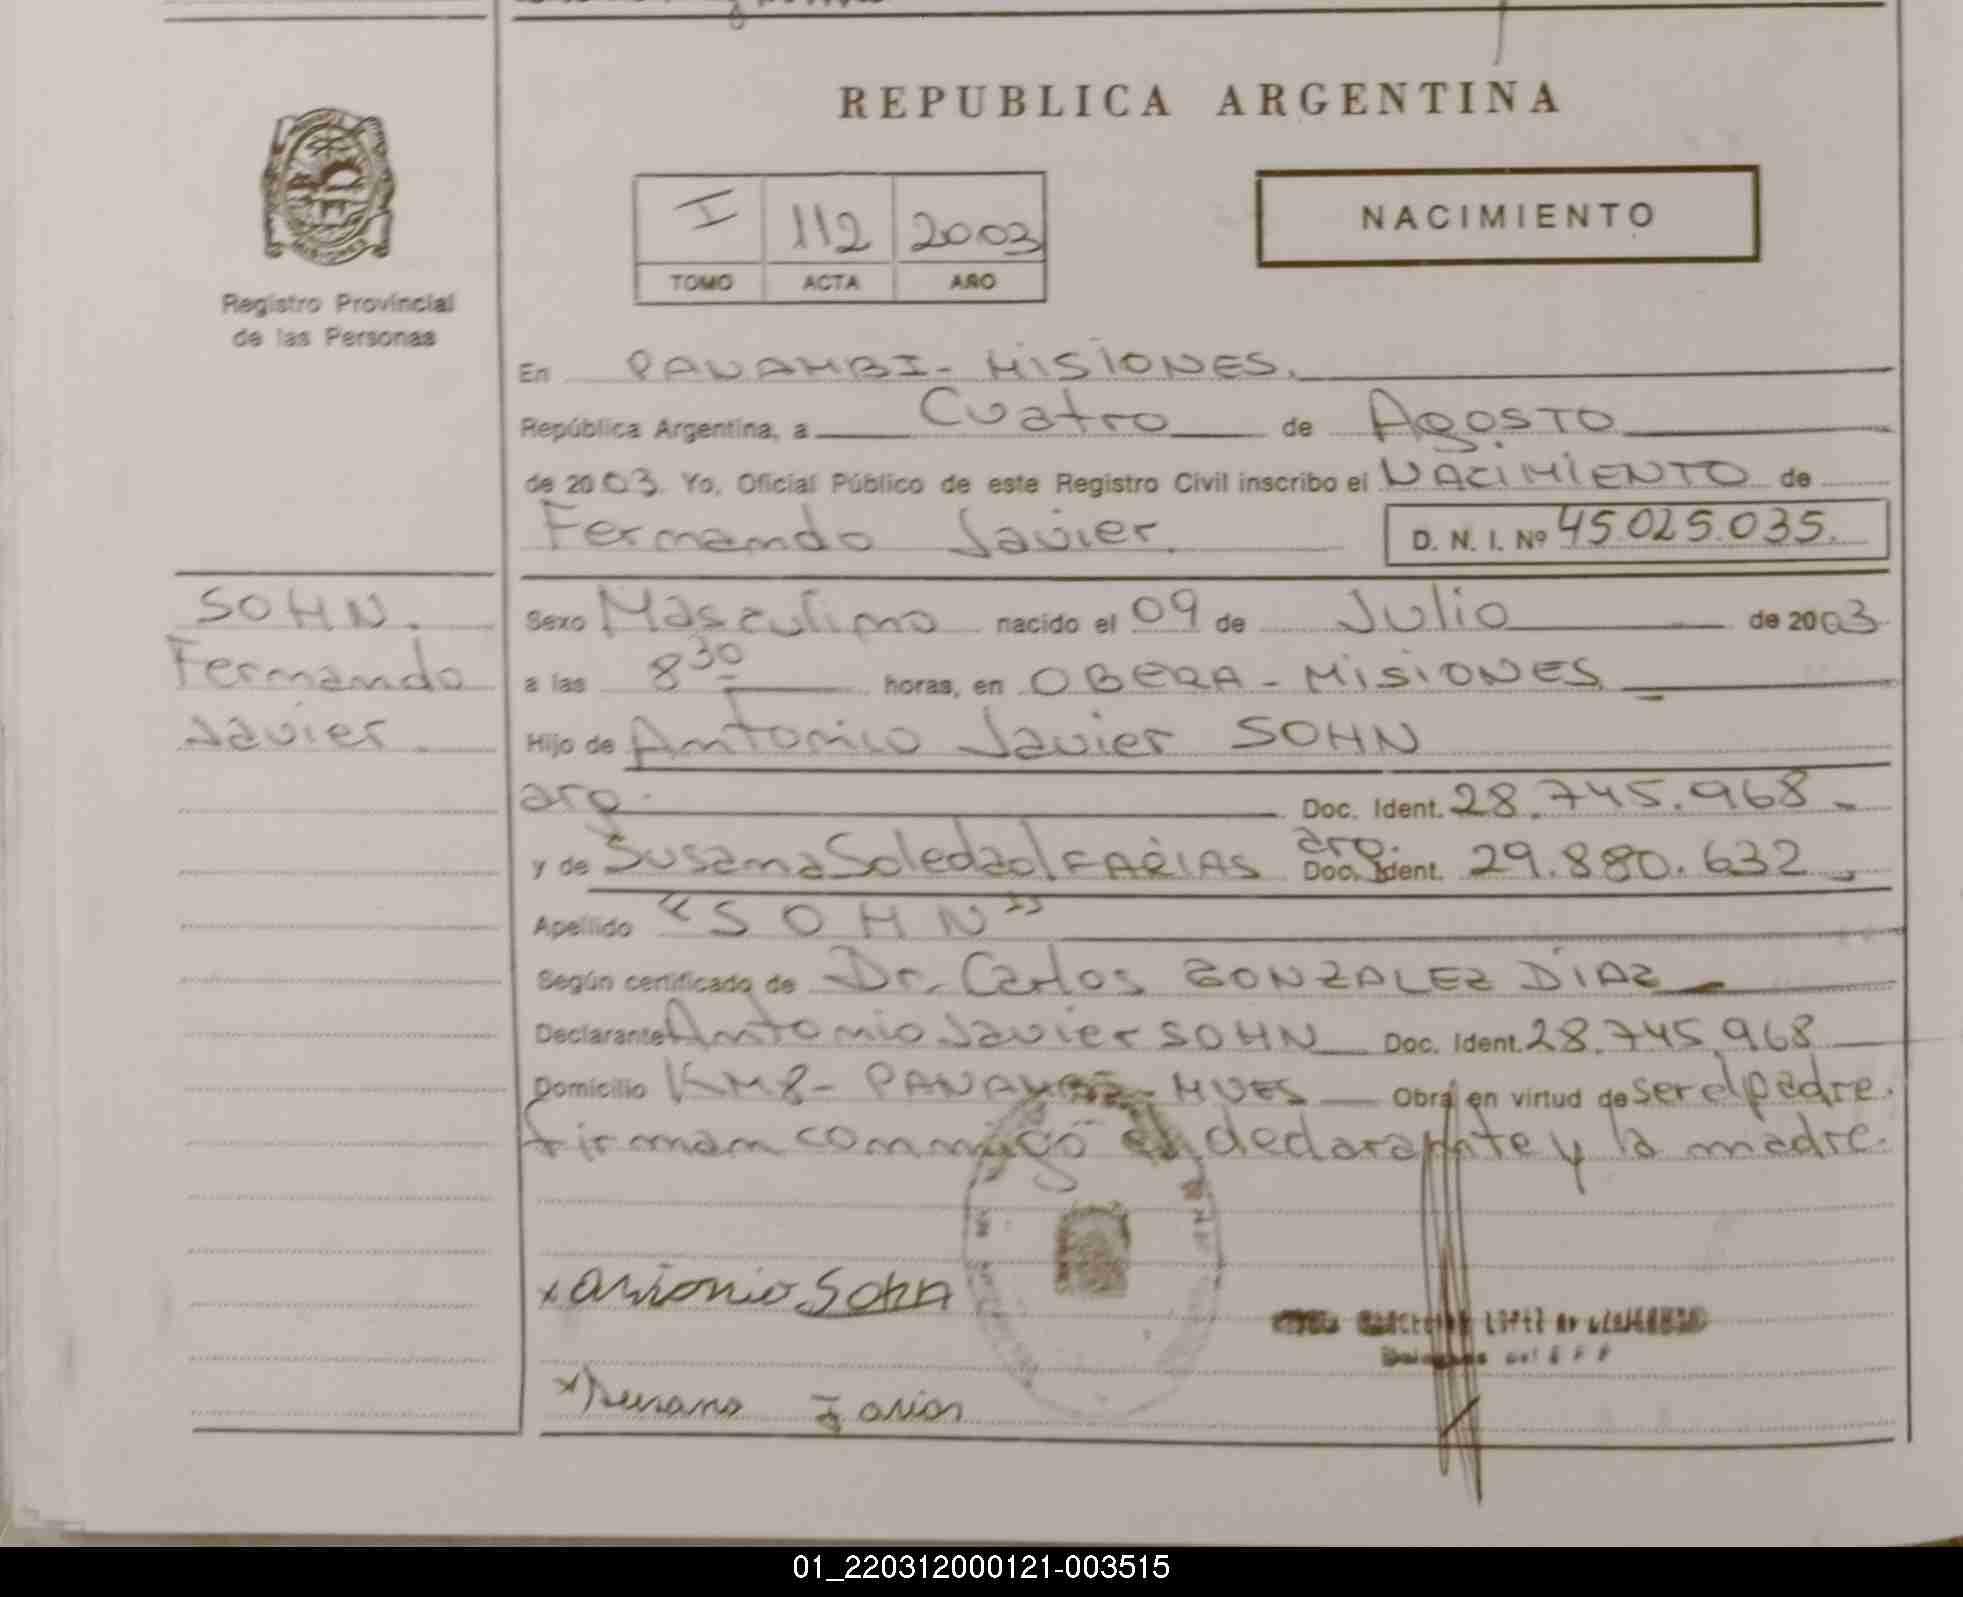 REPUBLICA ARGENTINA
I 112 2003
TOMO ACTA AÑO
NACIMIENTO
Registro Provincial
de las Personas
En PANAMBI - MISIONES.
República Argentina, a Cuatro de Agosto
de 2003. Yo, Oficial Público de este Registro Civil inscribo el NACIMIENTO de
Fernando Javier. D. N. I. Nº 45.025.035.
SOHN.
Fernando
Javier.
Sexo Masculino nacido el 09 de Julio de 2003
a las 8 30 horas, en OBERA - MISIONES
Hijo de Antonio Javier SOHN
arg. Doc. Ident. 28.745.968.
y de Susana Soledad FARIAS arg. Doc. Ident. 29.880.632.
Apellido "SOHN"
Según certificado de Dr. Carlos GONZALEZ DIAZ
Declarante Antonio Javier SOHN Doc. Ident. 28.745.968
Domicilio KM8 - PANAMBI - MNES Obra en virtud de ser el padre.
firman conmigo el declarante y la madre.
x Antonio Sohn
x Susana Farias
01_220312000121-003515